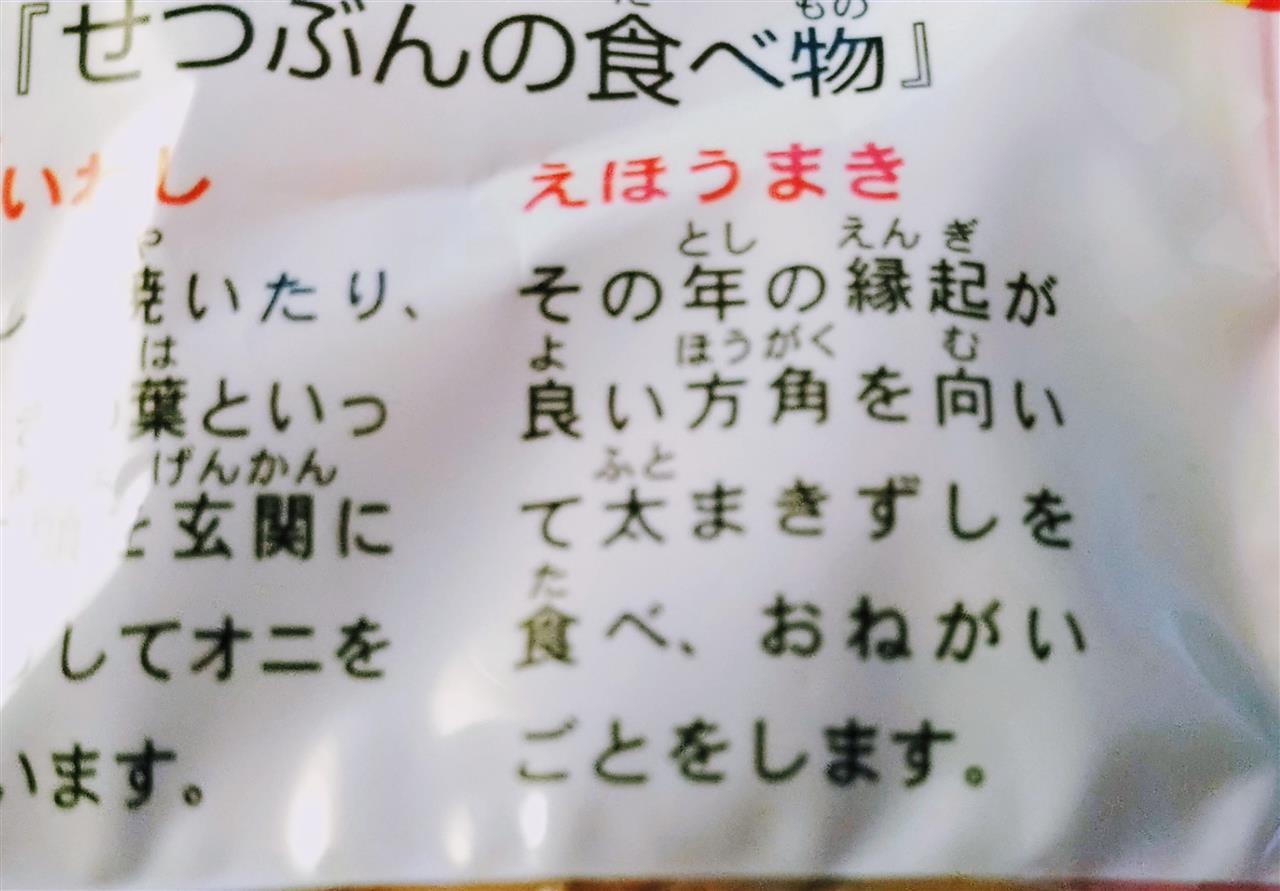 『せつぶんの食べ物』
いわし
焼いたり、
葉といっ
玄関に
してオニを
います。
えほうまき
その年の縁起が
良い方角を向い
て太まきずしを
食べ、おねがい
ごとをします。